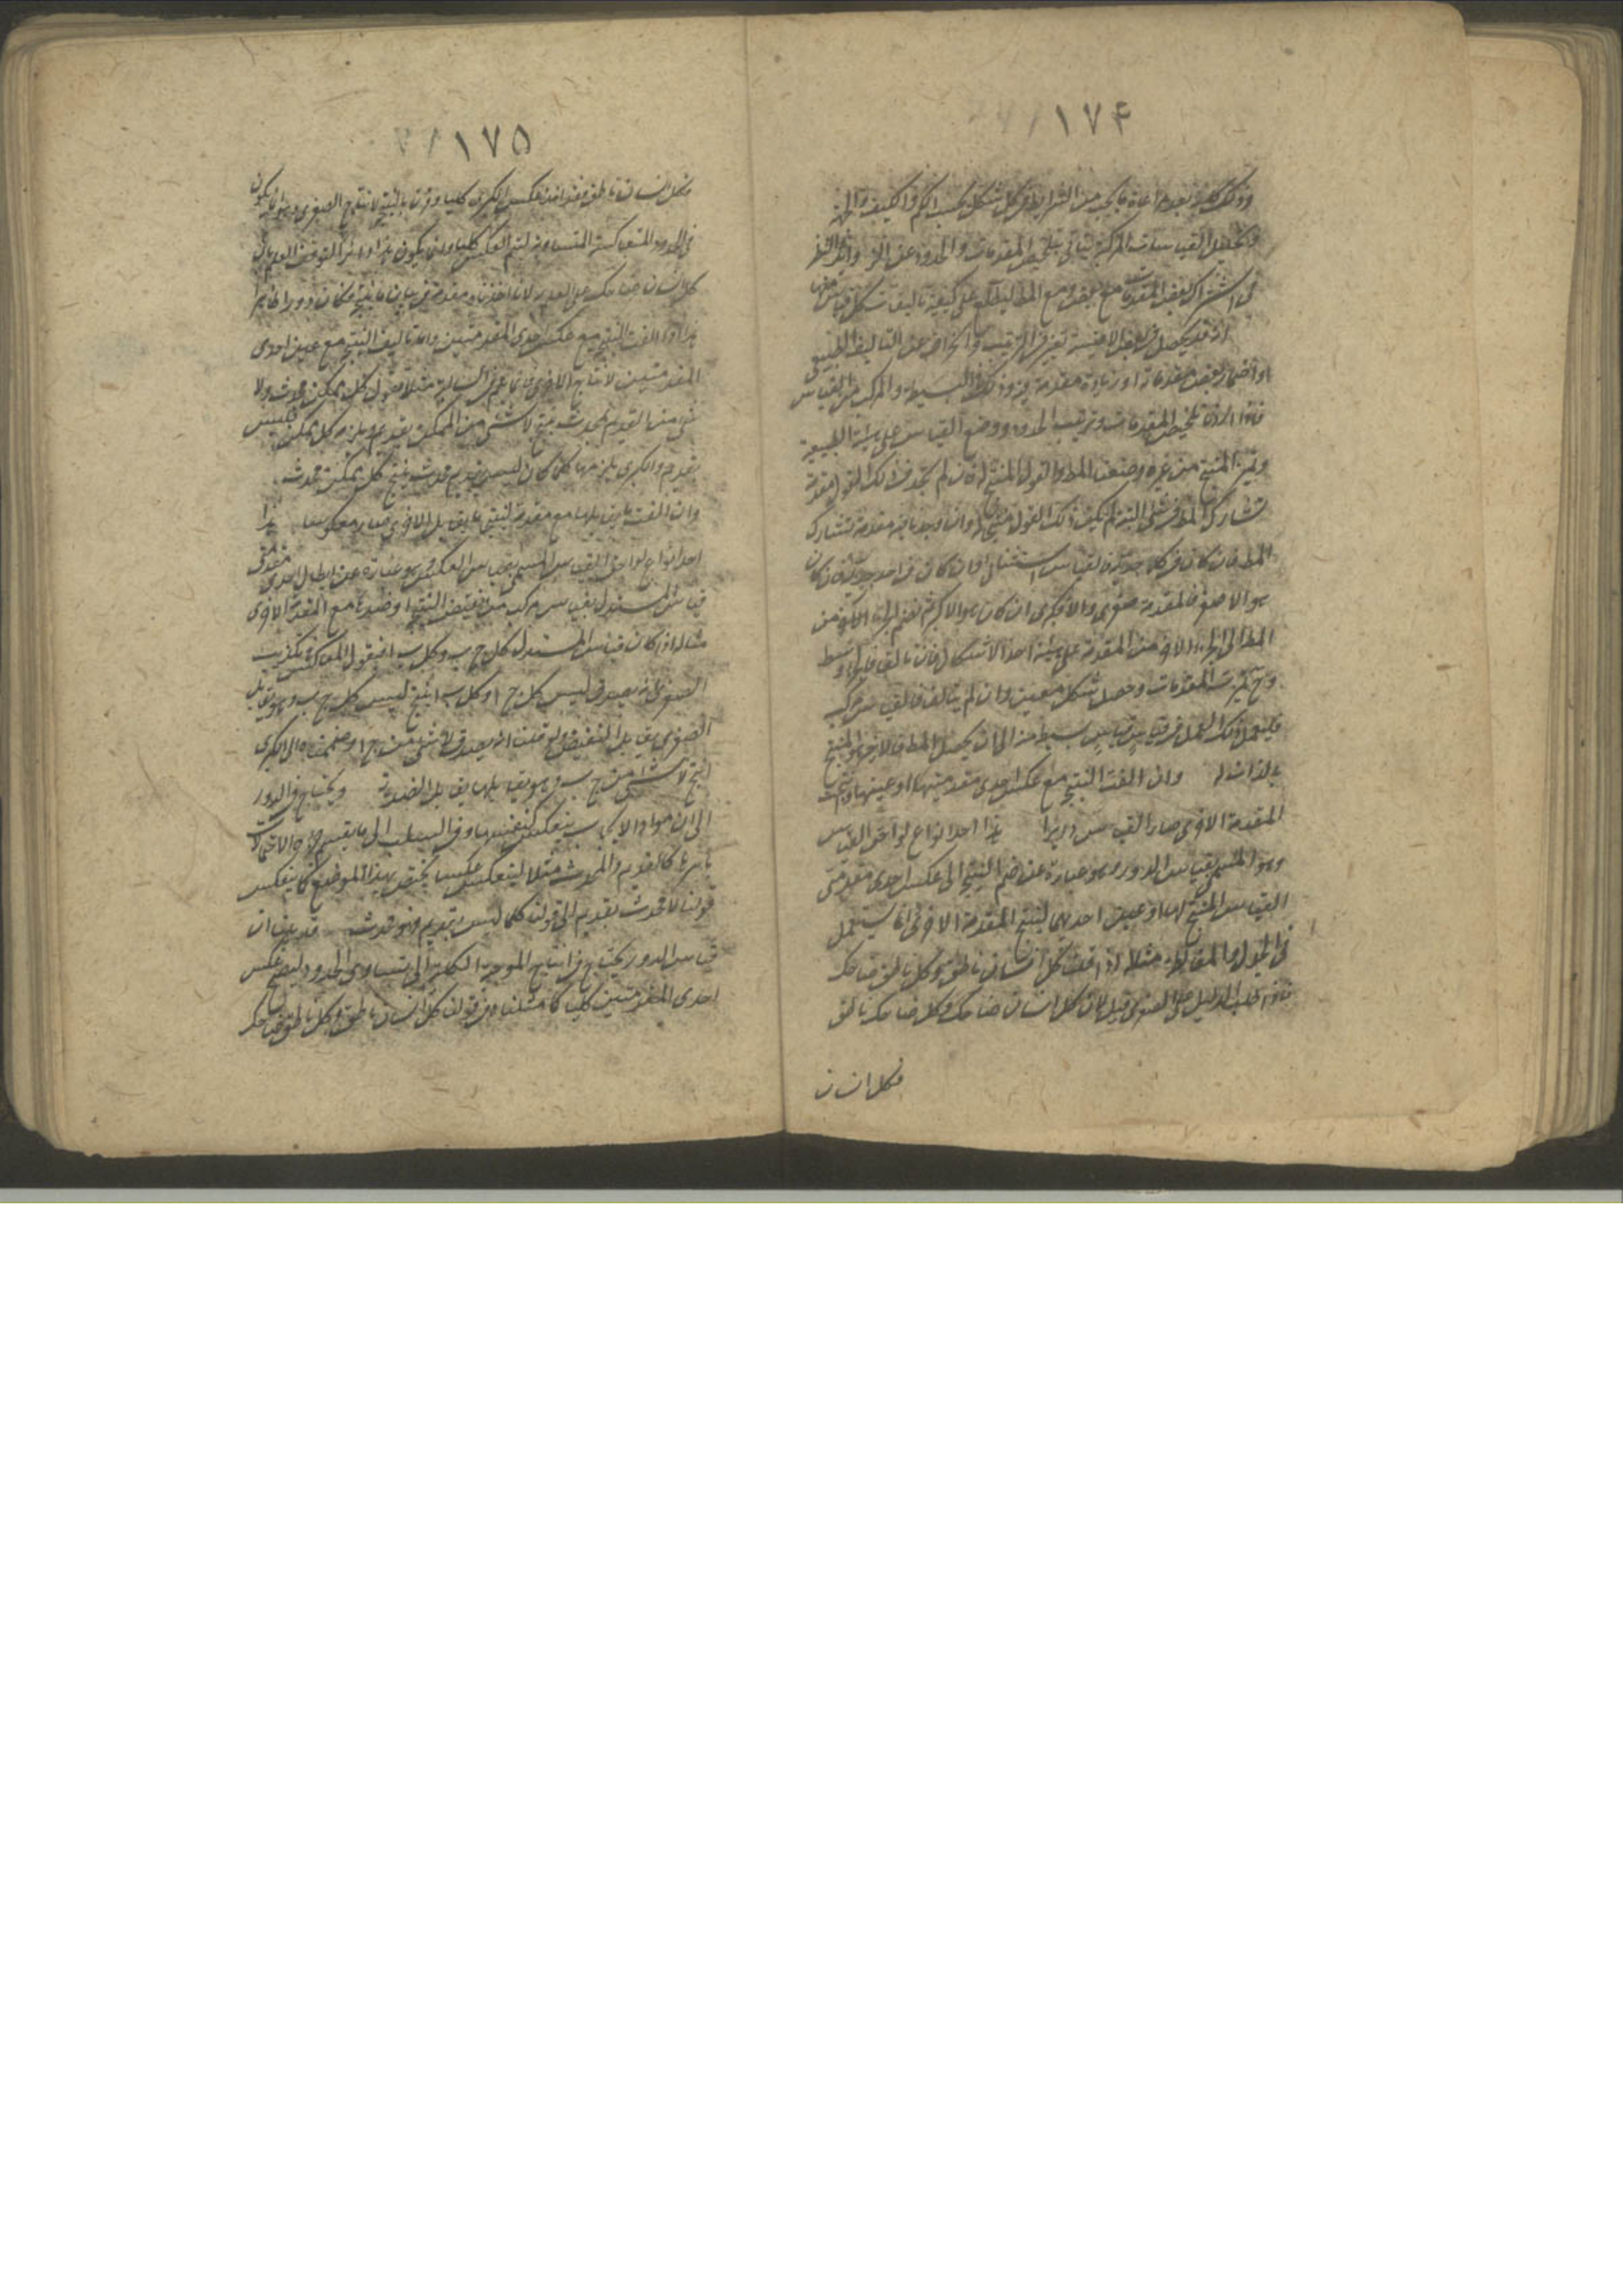 ١٧۴
وذلك كله بعد مراعاة ما يجب من الشرايط فى كل شكل بحسب الكم والكيف والجهة
وتحليل القياسات المركبة يتأتى بتلخيص المقدمات والحدود عن الزوايد والنظر
فى اشتراك بعض المقدمات مع بعض ومع المط ليطلع على كيفية تأليف كل قياس منها
اذ قد يحصل فى الاقيسة تغير فى الترتيب وانحراف عن التأليف الطبيعى
او اضمار بعض مقدماته او زيادة مقدمة
فاذا اردنا تلخيص المقدمات وترتيب الحدود ووضع القياس على هيئة الطبيعية
وتميز المنتج من غيره وضعنا المط والقول المنتج له فان لم نجد فى ذلك القول مقدمة
تشارك المط فى شئ البتة لم يكن ذلك القول منتجا له وان وجدنا فيه مقدمة تشارك
المط فان كان فى كلا جزئيه فالقياس استثنائى وان كان فى احد جزئيه فان كان
هو الاصغر فالمقدمة صغرى والا فكبرى ان كان هو الاكبر ثم نضم الجزء الآخر من
المط الى الجزء الآخر من المقدمة على هيئة احد الاشكال فان تألف فالجزء وسط
وح تميزت المقدمات وحصل شكل معين وان لم يتألف فالقياس مركب
فليعمل ذلك العمل فى قياس قياس بسيط منه الى ان يحصل المط فالاخير هو المنتج
بالذات له وان الفت النتيجة مع عكس احدى مقدمتيها او عينها وانتجت
المقدمة الاخرى صار القياس دايرا هذا احد انواع لواحق القياس
وهو المسمى بقياس الدور وهو عبارة عن ضم النتيجة الى عكس احدى مقدمتى
القياس المنتج لها او عين احديهما لينتج المقدمة الاخرى انما يستعمل
فى الجدل والمغالطة مثلا اذا قلت كل انسان ناطق وكل ناطق ضاحك
فاذا طلب الدليل على الصغرى قيل لان كل انسان ضاحك وكل ضاحك ناطق
فكل انسان
١٧۵
فكل انسان ناطق فقد اخذ عكس الكبرى كليا وقرن بالنتيجة لانتاج الصغرى وهو انما يكون
فى الحدود المتعاكسة المتساوية
كل انسان ضاحك على العدم لانا اخذناه مقدمة فى بيان ما ينتجه فكان دورا ظاهرا
هذا اذا الفت النتيجة مع عكس احدى المقدمتين واما تأليف النتيجة مع عين احدى
المقدمتين لانتاج الاخرى فانما هو فى السالبة مثلا نقول كل ممكن محدث ولا
شئ من القديم بمحدث ينتج لا شئ من الممكن بقديم ويلزمه كل ممكن فليس
بقديم والكبرى يلزمها كلما كان ليس بقديم محدث ينتج كل ممكن محدث
وان الفت ما يقابلها مع مقدمة لينتج ما يقابل الاخرى صار معكوسا هذا
احد انواع لواحق القياس المسمى بقياس العكس وهو عبارة عن ابطال احدى مقدمتى
قياس المستدل بقياس مركب من نقيض النتيجة او ضدها مع المقدمة الاخرى
مثاله اذا كان قياس المستدل كل ج ب وكل ب ا فيقول المعاكس بكذب
الصغرى لانه يصدق ليس كل ج ا وكل ب ا ينتج ليس كل ج ب وهو يقابل
الصغرى يقابل النقيض ولو قلت انه يصدق لا شئ من ج ا وضممته الى الكبرى
انتج لا شئ من ج ب وهو يقابلها يقابل الضدية ويحتاج فى الدور
الى ان مواد الايجاب ينعكس كنفسها وفى السلب الى ما
باسرها كالقديم والمحدث مثلا لينعكس عكسا يختص بهذا الموضع كما ينعكس
قولنا لا محدث بقديم الى قولنا كلما ليس بقديم فهو محدث قد بان ان
قياس الدور يحتاج فى انتاج الموجبة الكلية الى تساوى الحدود ليصح عكس
احدى المقدمتين كليا كما مثلنا فى قولنا كل انسان ناطق وكل ناطق ضاحك